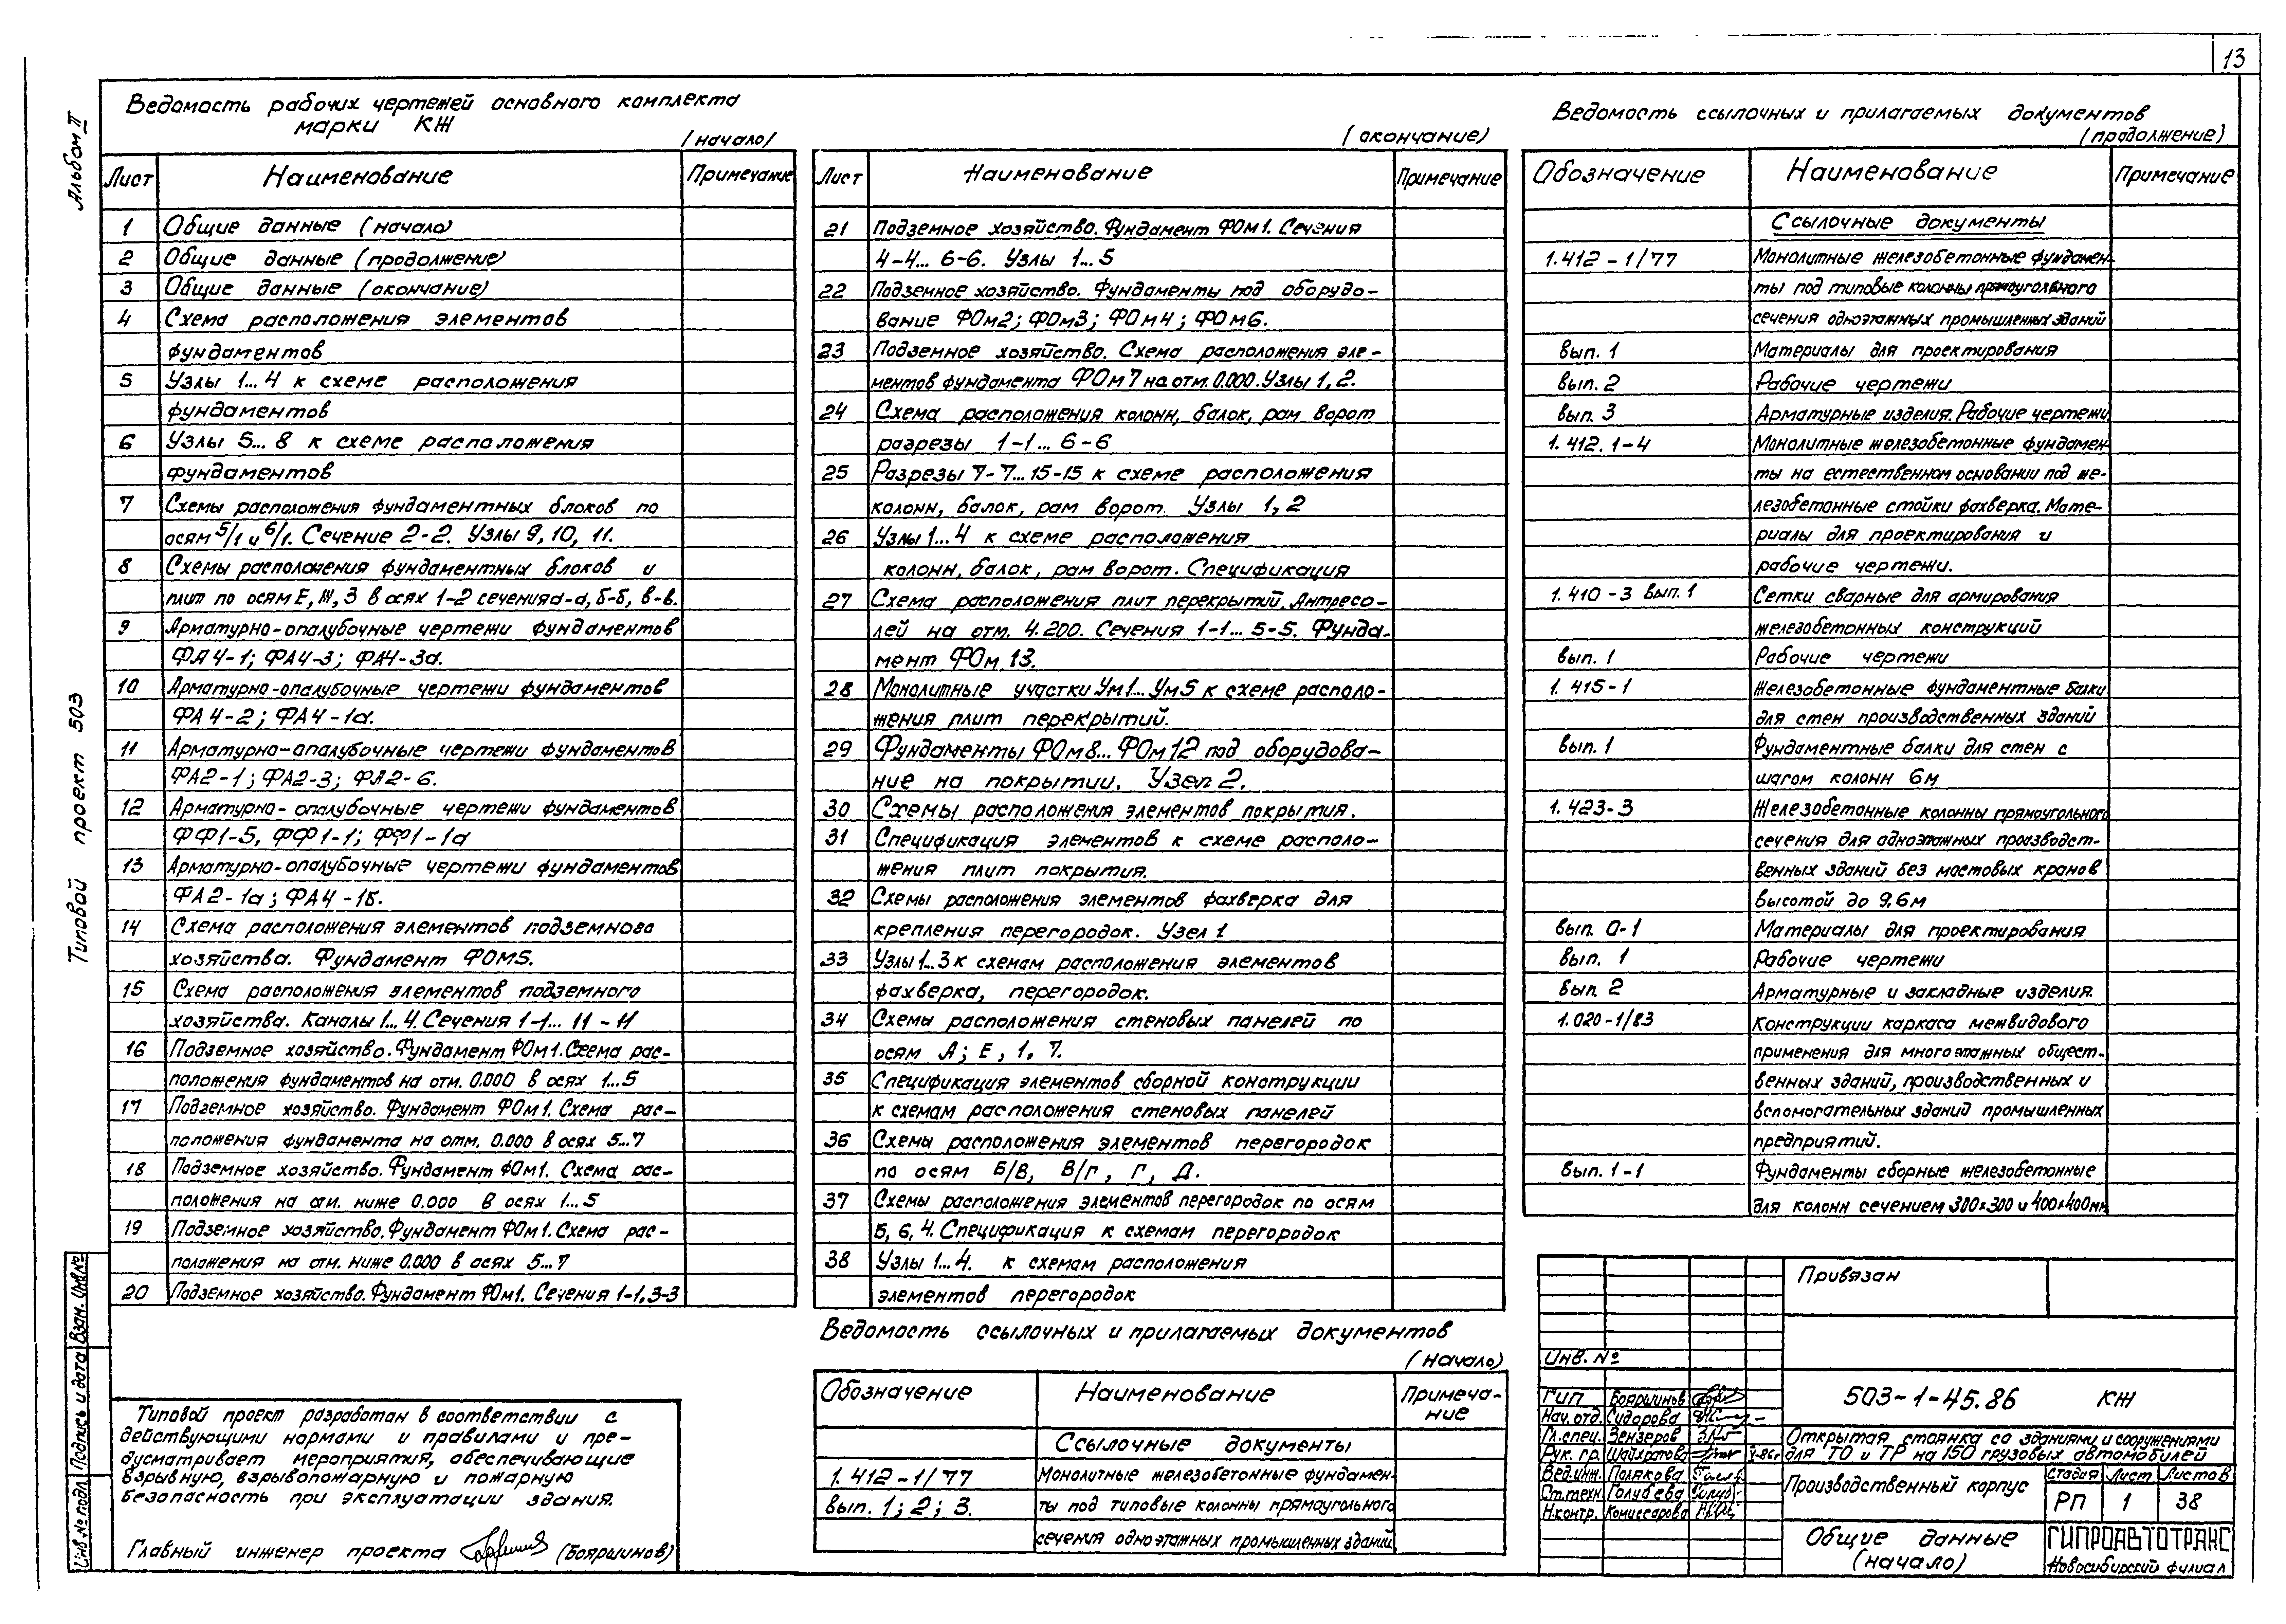 13
Альбом II
Типовой проект 503
Ведомость рабочих чертежей основного комплекта
марки КЖ
(начало)
Лист Наименование Примечание
1 Общие данные (начало)
2 Общие данные (продолжение)
3 Общие данные (окончание)
4 Схема расположения элементов
фундаментов
5 Узлы 1...4 к схеме расположения
фундаментов
6 Узлы 5...8 к схеме расположения
фундаментов
7 Схемы расположения фундаментных блоков по
осям 5/1 и 6/1. Сечение 2-2. Узлы 9, 10, 11.
8 Схемы расположения фундаментных блоков и
плит по осям Е, Ж, З в осях 1-2 сечения а-а, б-б, в-в.
9 Арматурно-опалубочные чертежи фундаментов
ФА4-1; ФА4-3; ФА4-3а.
10 Арматурно-опалубочные чертежи фундаментов
ФА4-2; ФА4-1а.
11 Арматурно-опалубочные чертежи фундаментов
ФА2-1; ФА2-3; ФА2-6.
12 Арматурно-опалубочные чертежи фундаментов
ФФ1-5, ФФ1-1; ФФ1-1а
13 Арматурно-опалубочные чертежи фундаментов
ФА2-1а; ФА4-1б.
14 Схема расположения элементов подземного
хозяйства. Фундамент ФОм5.
15 Схема расположения элементов подземного
хозяйства. Каналы 1...4. Сечения 1-1... 11-11
16 Подземное хозяйство. Фундамент ФОм1. Схема рас-
положения фундаментов на отм. 0.000 в осях 1...5
17 Подземное хозяйство. Фундамент ФОм1. Схема рас-
положения фундамента на отм. 0.000 в осях 5...7
18 Подземное хозяйство. Фундамент ФОм1. Схема рас-
положения на отм. ниже 0.000 в осях 1...5
19 Подземное хозяйство. Фундамент ФОм1. Схема рас-
положения на отм. ниже 0.000 в осях 5...7
20 Подземное хозяйство. Фундамент ФОм1. Сечения 1-1, 3-3
Типовой проект разработан в соответствии с
действующими нормами и правилами и пре-
дусматривает мероприятия, обеспечивающие
взрывную, взрывопожарную и пожарную
безопасность при эксплуатации здания.
Главный инженер проекта (Бояршинов)
Инв. № подл. Подпись и дата Взам. инв. №
(окончание)
Лист Наименование Примечание
21 Подземное хозяйство. Фундамент ФОм1. Сечения
4-4... 6-6. Узлы 1...5
22 Подземное хозяйство. Фундаменты под оборудо-
вание ФОм2; ФОм3; ФОм4; ФОм6.
23 Подземное хозяйство. Схема расположения эле-
ментов фундамента ФОм7 на отм. 0.000. Узлы 1, 2.
24 Схема расположения колонн, балок, рам ворот
разрезы 1-1... 6-6
25 Разрезы 7-7... 15-15 к схеме расположения
колонн, балок, рам ворот. Узлы 1, 2
26 Узлы 1...4 к схеме расположения
колонн, балок, рам ворот. Спецификация
27 Схема расположения плит перекрытий. Антресо-
лей на отм. 4.200. Сечения 1-1... 5-5. Фунда-
мент ФОм 13.
28 Монолитные участки Ум1... Ум5 к схеме располо-
жения плит перекрытий.
29 Фундаменты ФОм8... ФОм12 под оборудова-
ние на покрытии. Узел 2.
30 Схемы расположения элементов покрытия.
31 Спецификация элементов к схеме располо-
жения плит покрытия.
32 Схемы расположения элементов фахверка для
крепления перегородок. Узел 1
33 Узлы 1...3 к схемам расположения элементов
фахверка, перегородок.
34 Схемы расположения стеновых панелей по
осям А; Е, 1, 7.
35 Спецификация элементов сборной конструкции
к схемам расположения стеновых панелей
36 Схемы расположения элементов перегородок
по осям Б/В, В/Г, Г, Д.
37 Схемы расположения элементов перегородок по осям
Б, 6, 4. Спецификация к схемам перегородок
38 Узлы 1...4. к схемам расположения
элементов перегородок
Ведомость ссылочных и прилагаемых документов
(начало)
Обозначение Наименование Примеча-
ние
Ссылочные документы
1.412-1/77 Монолитные железобетонные фундамен-
вып. 1; 2; 3. ты под типовые колонны прямоугольного
сечения одноэтажных промышленных зданий
Ведомость ссылочных и прилагаемых документов
(продолжение)
Обозначение Наименование Примечание
Ссылочные документы
1.412-1/77 Монолитные железобетонные фундамен-
ты под типовые колонны прямоугольного
сечения одноэтажных промышленных зданий
вып. 1 Материалы для проектирования
вып. 2 Рабочие чертежи
вып. 3 Арматурные изделия. Рабочие чертежи
1.412.1-4 Монолитные железобетонные фундамен-
ты на естественном основании под же-
лезобетонные стойки фахверка. Мате-
риалы для проектирования и
рабочие чертежи.
1.410-3 вып. 1 Сетки сварные для армирования
железобетонных конструкций
вып. 1 Рабочие чертежи
1.415-1 Железобетонные фундаментные балки
для стен производственных зданий
вып. 1 Фундаментные балки для стен с
шагом колонн 6м
1.423-3 Железобетонные колонны прямоугольного
сечения для одноэтажных производст-
венных зданий без мостовых кранов
высотой до 9,6м
вып. 0-1 Материалы для проектирования
вып. 1 Рабочие чертежи
вып. 2 Арматурные и закладные изделия.
1.020-1/83 Конструкции каркаса межвидового
применения для многоэтажных общест-
венных зданий, производственных и
вспомогательных зданий промышленных
предприятий.
вып. 1-1 Фундаменты сборные железобетонные
для колонн сечением 300х300 и 400х400мм
Привязан
Инв. №
ГИП Бояршинов
Нач. отд. Сидорова
Гл. спец. Зензеров
Рук. гр.
Вед. инж. Полякова
Ст. техн. Голубева
Н. контр. Комиссарова
503-1-45.86 КЖ
Открытая стоянка со зданиями и сооружениями
для ТО и ТР на 150 грузовых автомобилей
Производственный корпус
Стадия Лист Листов
РП 1 38
Общие данные
(начало)
ГИПРОАВТОТРАНС
Новосибирский филиал